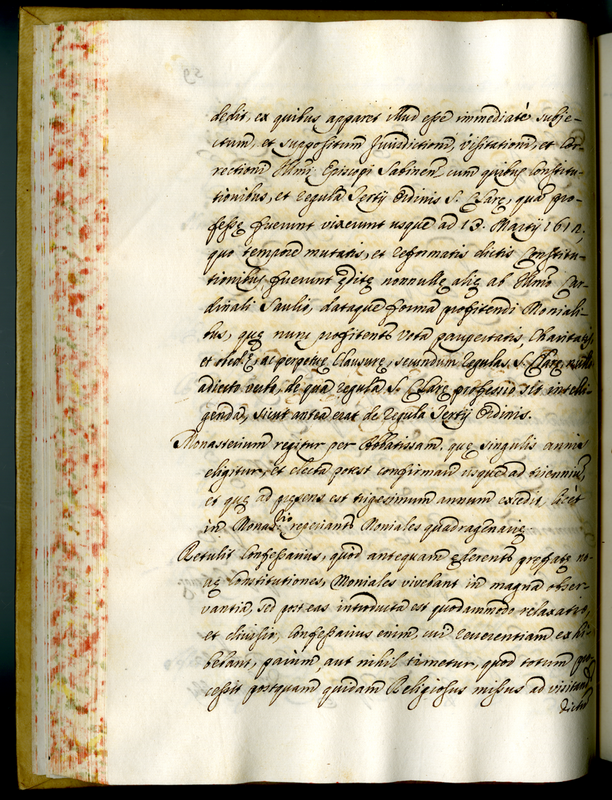 dedit, ex quibus apparet illud esse immediatè subje-
ctum, et suppositum Jurisdictioni, visitationi, et Cor-
rectioni Illmi Episcopi Sabinen. cum quibus Constitu-
tionibus, et regula Tertij Ordinis S. Claræ, quam pro-
fessæ fuerunt vixerunt usque ad 13. Martij 1612,
quo tempore mutatis, et reformatis dictis Constitu-
tionibus, fuerunt editæ nonnullæ aliæ ab Illmo Car-
dinali Saulio, dataque forma profitendi Moniali-
bus, quæ nunc profitentur vota paupertatis, Charitatis,
et obedæ, ac perpetuæ Clausuræ, secundum regulas S. Claræ, nullo
adiecto verbo, de qua regula S. Claræ professio sit intelli-
genda, sicut antea erat de regula Tertij Ordinis.
Monasterium regitur per Abbatissam, quæ singulis annis
eligitur, et electa potest confirmari usque ad triennium,
et quæ ad præsens est trigesimum annum excedit, licet
in Monasrio reperiantur Moniales quadragenariæ
Retulit Confessarius, quod antequam ederentur præfatæ no-
væ Constitutiones, Moniales vivebant in magna obser-
vantia, sed post eas introducta est quodammodo relaxatio,
et divisio, Confessarius enim, cui reverentiam exhi-
bebant, parum, aut nihil timetur, quod totum pro-
cessit postquam quidam Religiosus missus ad visitand.